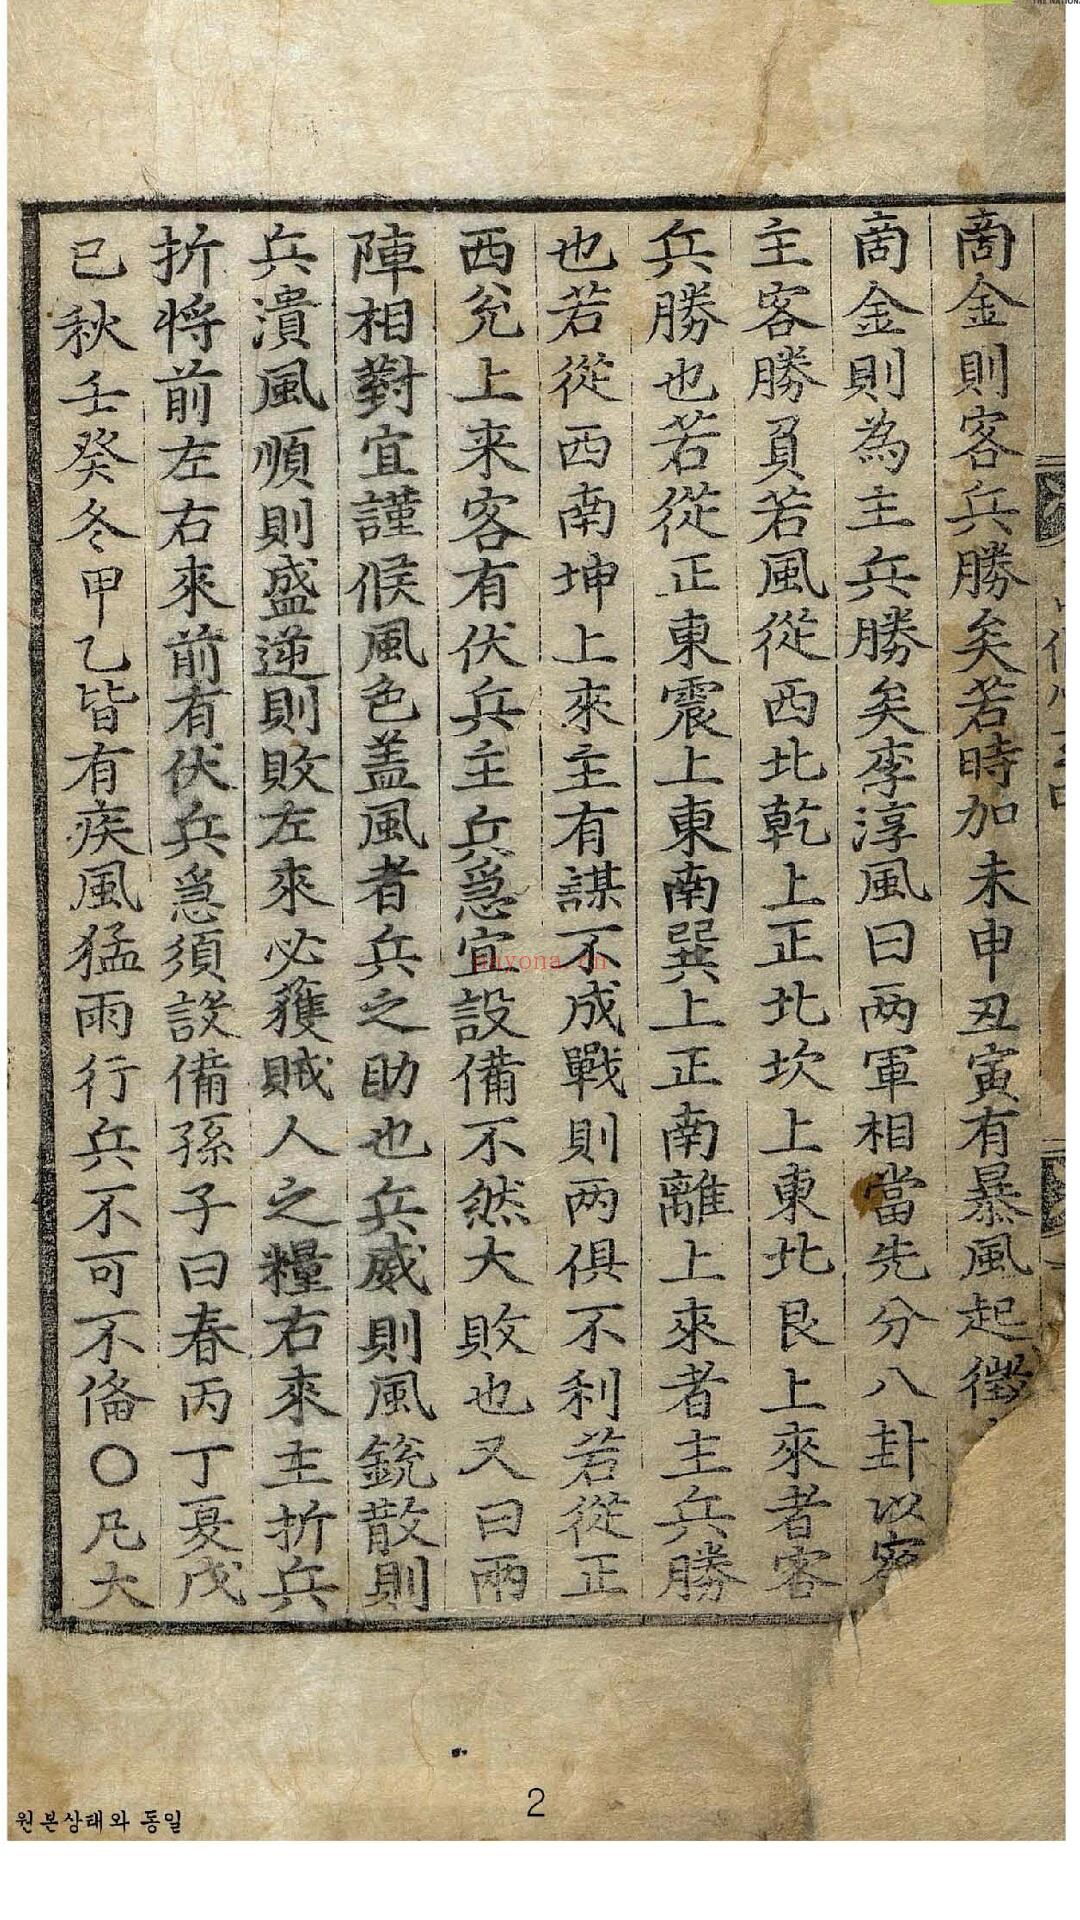 商金則客兵勝矣若時加未申丑寅有暴風起徵
商金則為主兵勝矣李淳風曰两軍相當先分八卦以客
主客勝負若風從西北乾上正北坎上東北艮上來者客
兵勝也若從正東震上東南巽上正南離上來者主兵勝
也若從西南坤上來主有謀不成戰則两俱不利若從正
西兊上来客有伏兵主兵急宜設備不然大敗也又曰兩
陣相對宜謹候風色盖風者兵之助也兵威則風銳散則
兵潰風順則盛逆則敗左來必獲賊人之糧右來主折兵
折将前左右來前有伏兵急須設備孫子曰春丙丁夏戊
已秋壬癸冬甲乙皆有疾風猛雨行兵不可不俻○凡大
2
원본상태와 동일
nayona.cn